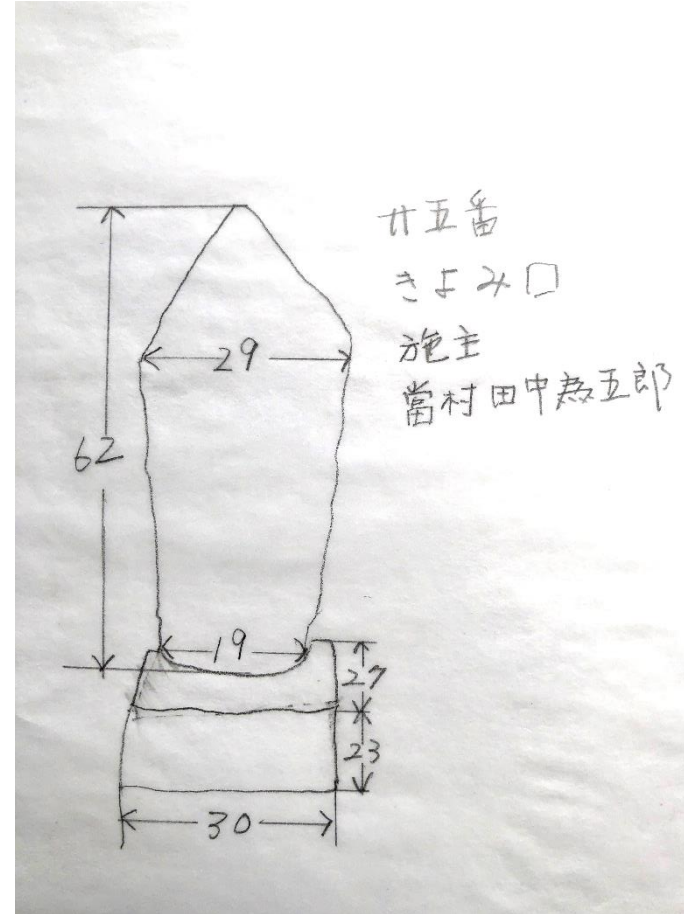 廿五番
きよみ□
施主
當村田中為五郎
29
62
19
27
23
30